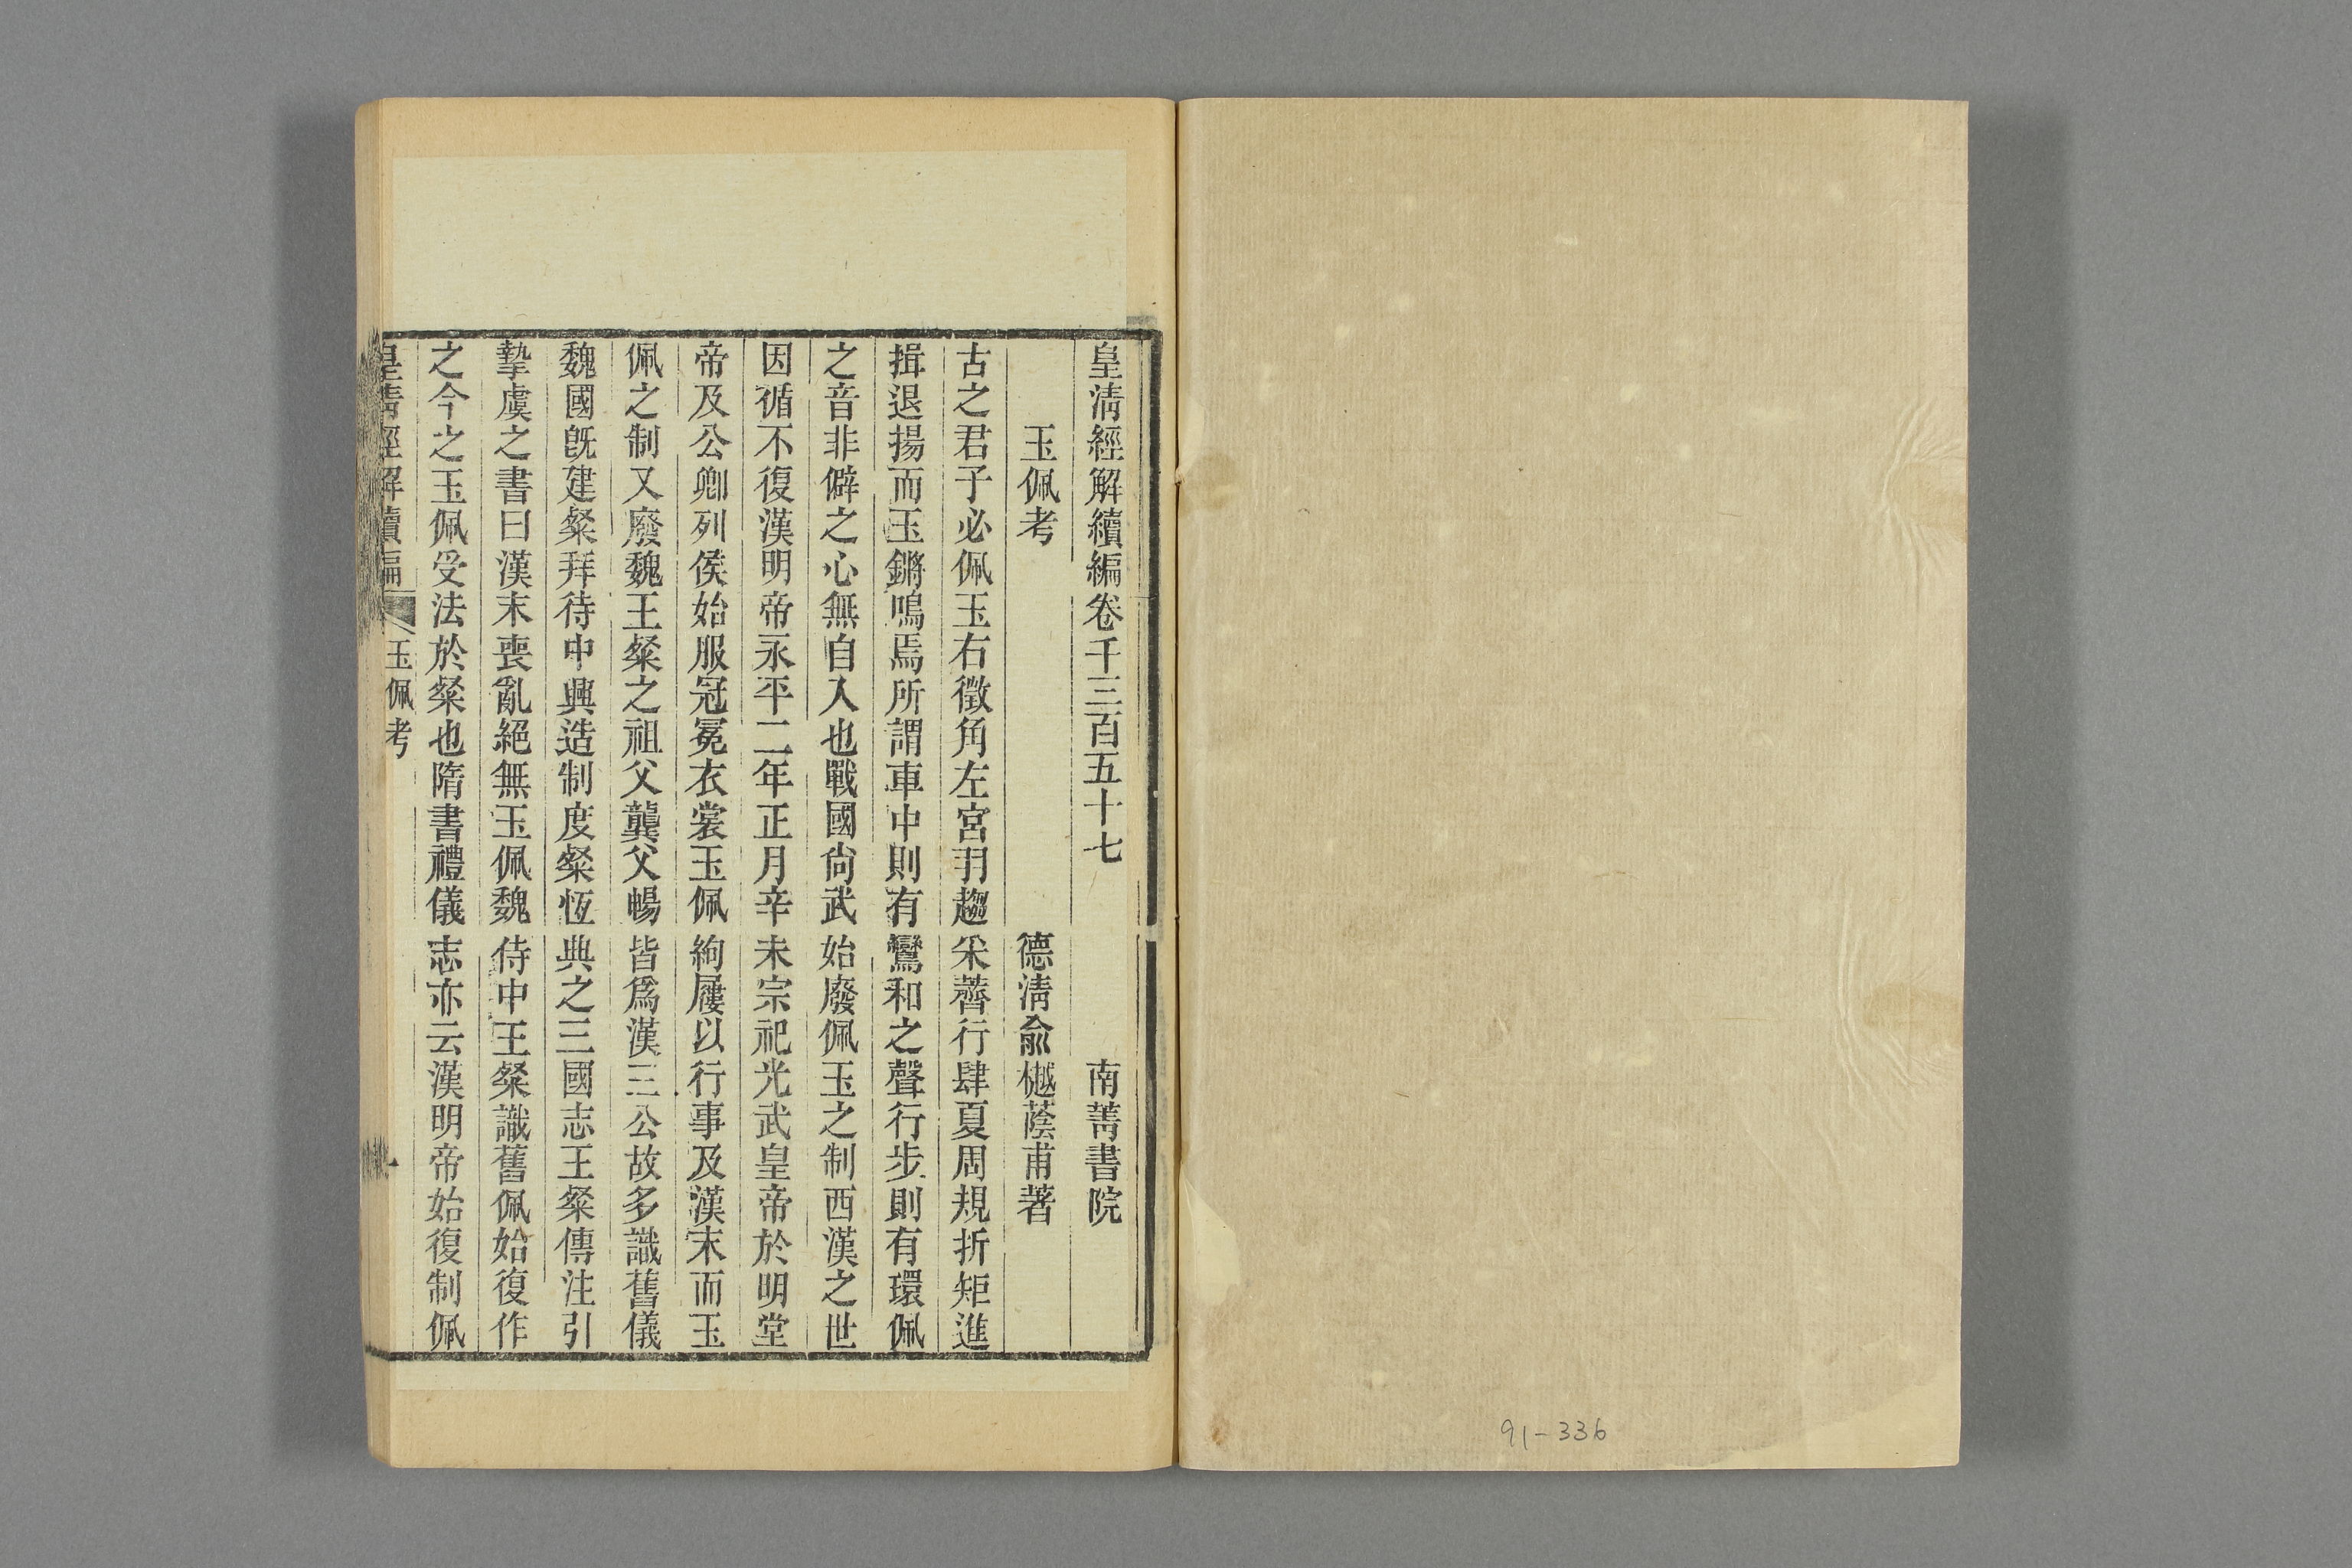 皇淸經解續編卷千三百五十七　南菁書院
玉佩考　德淸兪樾蔭甫著
古之君子必佩玉右徵角左宮羽趨采薺行肆夏周規折矩進
揖退揚而玉鏘鳴焉所謂車中則有鸞和之聲行步則有環佩
之音非僻之心無自入也戰國尙武始廢佩玉之制西漢之世
因循不復漢明帝永平二年正月辛未宗祀光武皇帝於明堂
帝及公卿列侯始服冠冕衣裳玉佩絇屨以行事及漢末而玉
佩之制又廢魏王粲之祖父龔父暢皆爲漢三公故多識舊儀
魏國旣建粲拜待中興造制度粲恆典之三國志王粲傳注引
摯虞之書曰漢末喪亂絕無玉佩魏侍中王粲識舊佩始復作
之今之玉佩受法於粲也隋書禮儀志亦云漢明帝始復制佩
皇淸經解續編　玉佩考　一
91-336